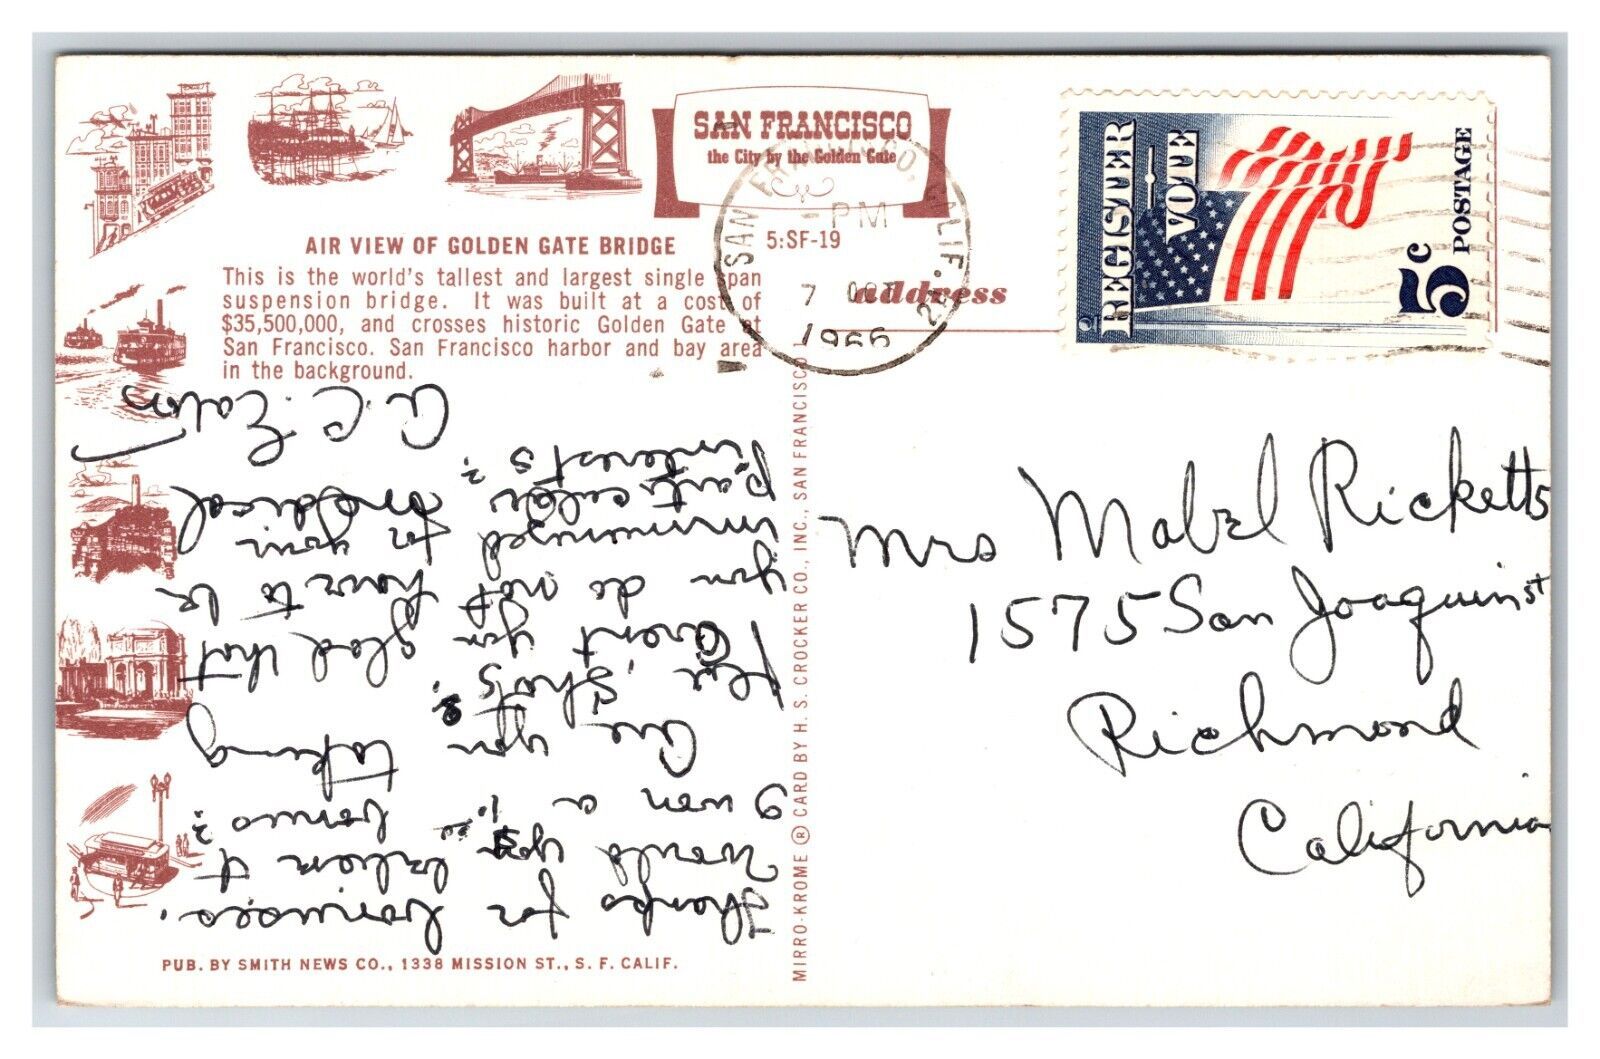 SAN FRANCISCO
the City by the Golden Gate
AIR VIEW OF GOLDEN GATE BRIDGE
5:SF-19
This is the world's tallest and largest single span
suspension bridge. It was built at a cost of
$35,500,000, and crosses historic Golden Gate at
San Francisco. San Francisco harbor and bay area
in the background.
address
SAN FRANCISCO, CALIF.
PM
7 OCT
1966
REGISTER
VOTE
5c
POSTAGE
Thanks for
would you
I won a 1.00
bonus?
Are you taking
flu shots?
Arent you glad that
you do not have to be
immunized for your
particular medical
interests?
A. C. Eaton
MIRRO-KROME ® CARD BY H. S. CROCKER CO., INC., SAN FRANCISCO 1
Mrs Mabel Ricketts
1575 San Joaquin st
Richmond
California
PUB. BY SMITH NEWS CO., 1338 MISSION ST., S. F. CALIF.